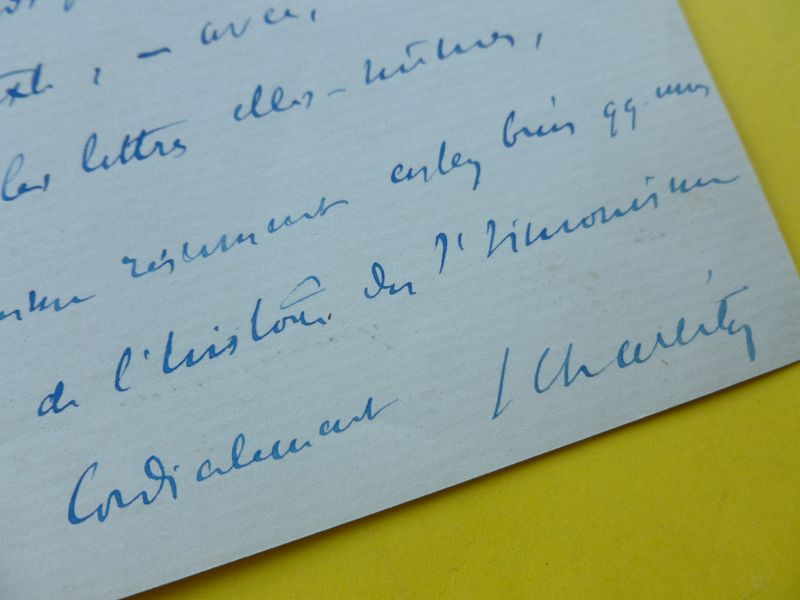 , – avec,
les lettres elles-mêmes,
résument assez bien qq. unes
de l'histoire du St Simonisme
Cordialement SCharléty